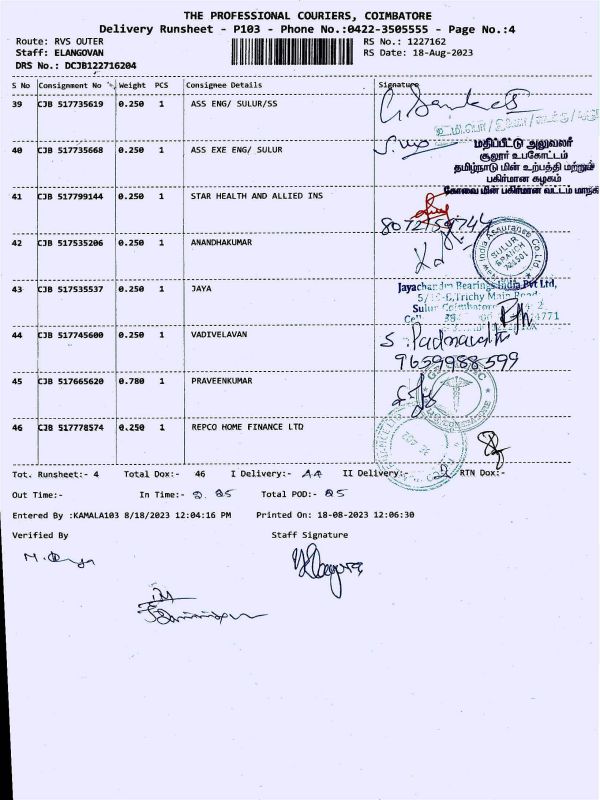 THE PROFESSIONAL COURIERS, COIMBATORE
Delivery Runsheet - P103 - Phone No.:0422-3505555 - Page No.:4
Route: RVS OUTER
RS No.: 1227162
Staff: ELANGOVAN
RS Date: 18-Aug-2023
DRS No.: DCJB122716204
S No Consignment No Weight PCS Consignee Details Signature
39 CJB 517735619 0.250 1 ASS ENG/ SULUR/SS
40 CJB 517735668 0.250 1 ASS EXE ENG/ SULUR
மதிப்பீட்டு அலுவலர்
சூலூர் உபகோட்டம்
தமிழ்நாடு மின் உற்பத்தி மற்றும்
பகிர்மான கழகம்
கோவை மின் பகிர்மான வட்டம்
41 CJB 517799144 0.250 1 STAR HEALTH AND ALLIED INS
42 CJB 517535206 0.250 1 ANANDHAKUMAR
India Assurance Co.Ltd
SULUR
BRANCH
43 CJB 517535537 0.250 1 JAYA
Jayachandra Bearings India Pvt Ltd,
Trichy Main Road
Sulur Coimbatore
44 CJB 517745600 0.250 1 VADIVELAVAN
S. Padmavathi
9659988599
45 CJB 517665620 0.780 1 PRAVEENKUMAR
46 CJB 517778574 0.250 1 REPCO HOME FINANCE LTD
Tot. Runsheet:- 4 Total Dox:- 46 I Delivery:- 44 II Delivery:- 2 RTN Dox:-
Out Time:- In Time:- Total POD:-
Entered By :KAMALA103 8/18/2023 12:04:16 PM Printed On: 18-08-2023 12:06:30
Verified By Staff Signature